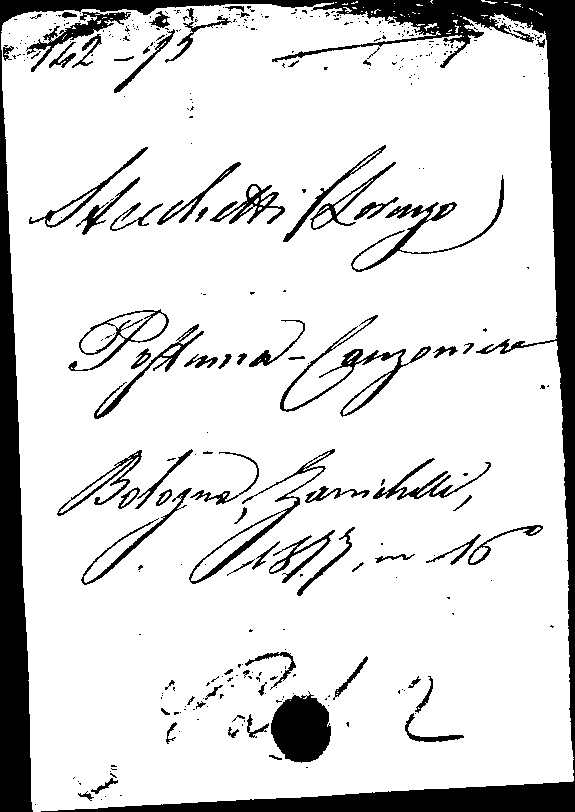 142-95
Stecchetti (Lorenzo)
Postuma - Canzoniere
Bologna, Zanichelli,
1877, in 16°
2